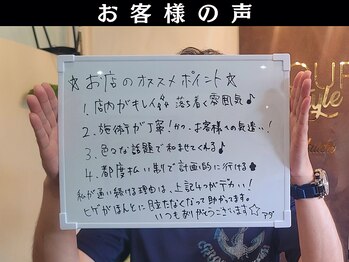 お客様の声
☆お店のオススメポイント☆
1. 店内がキレイ 落ち着く雰囲気♪
2. 施術が丁寧!かつ、お客様への気遣い!
3. 色々な話題で和ませてくれる♪
4. 都度払い制で計画的に行ける
私が通い続ける理由は、上記4つがデカい!
ヒゲがほんとに目立たなくなって助かってます。
いつもありがとうございます☆
style